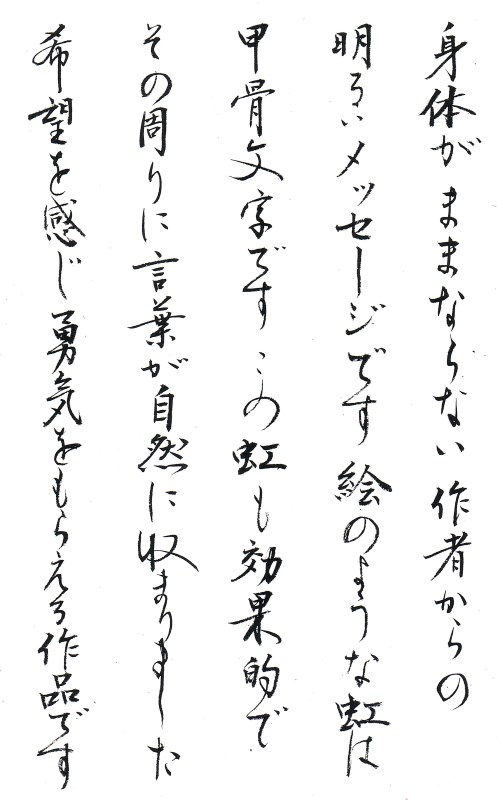 身体がままならない作者からの
明るいメッセージです絵のような虹は
甲骨文字ですこの虹も効果的で
その周りに言葉が自然に収まりました
希望を感じ勇気をもらえる作品です